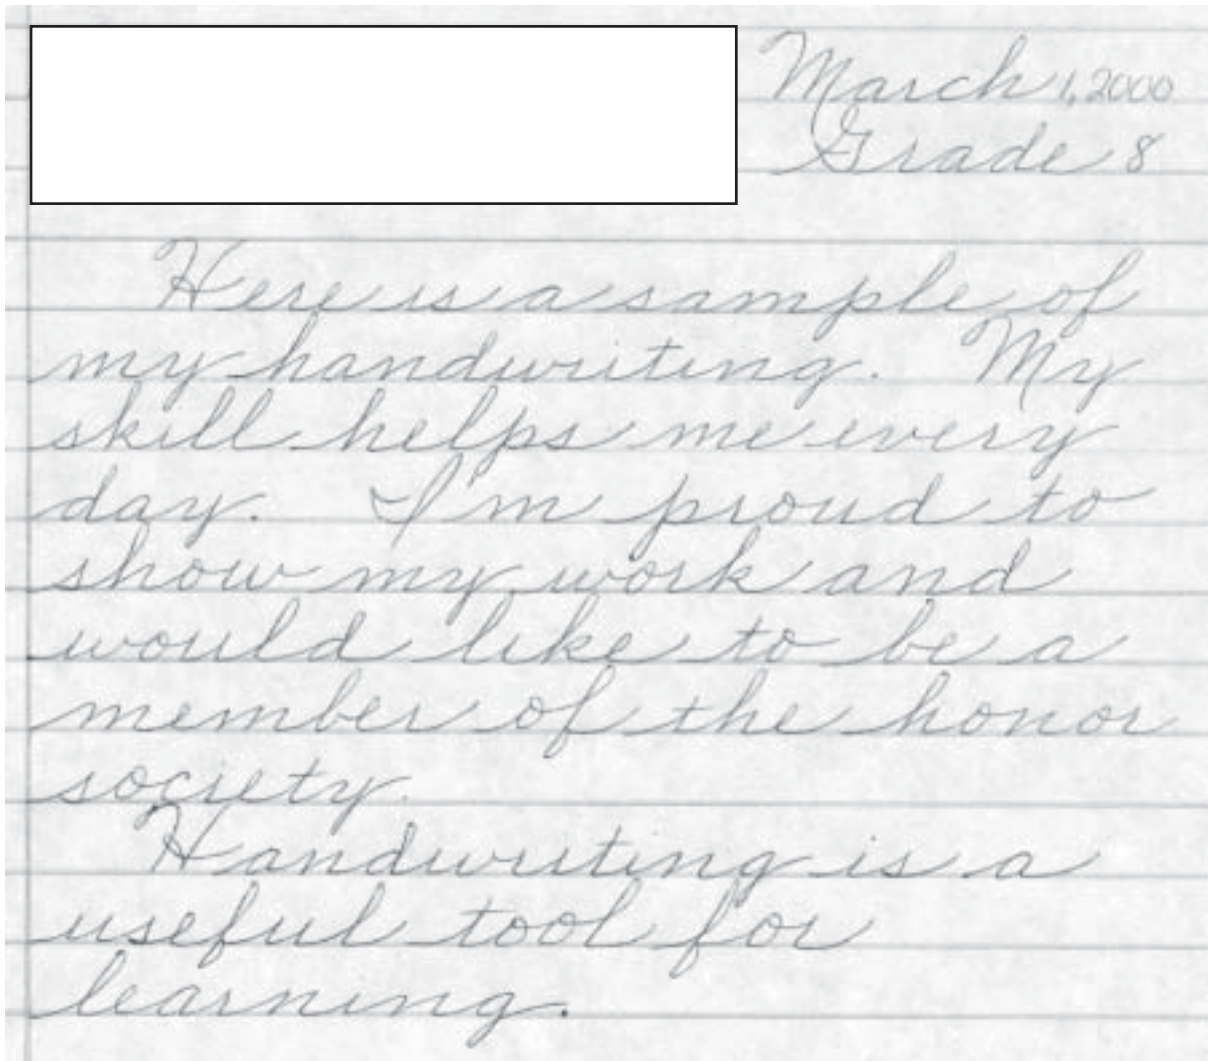 March 1, 2000
Grade 8
Here is a sample of
my handwriting. My
skill helps me every
day. I'm proud to
show my work and
would like to be a
member of the honor
society.
Handwriting is a
useful tool for
learning.